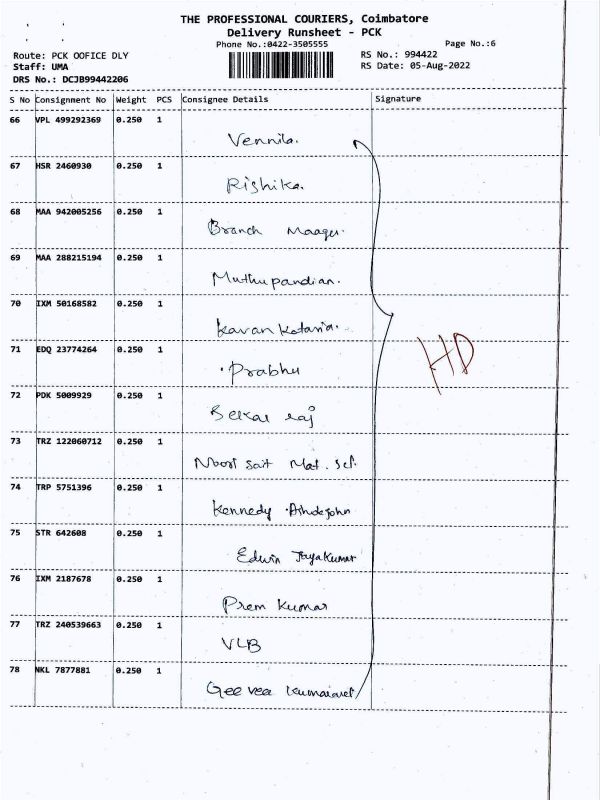 THE PROFESSIONAL COURIERS, Coimbatore
Delivery Runsheet - PCK
Phone No.:0422-3505555
Page No.:6
Route: PCK OOFICE DLY
RS No.: 994422
Staff: UMA
RS Date: 05-Aug-2022
DRS No.: DCJB99442206
S No Consignment No Weight PCS Consignee Details Signature
66 VPL 499292369 0.250 1
Vennila.
67 HSR 2460930 0.250 1
Rishika.
68 MAA 942005256 0.250 1
Branch
69 MAA 288215194 0.250 1
Muthupandian.
70 IXM 50168582 0.250 1
Karan Kotaria.
71 EDQ 23774264 0.250 1
Prabhu
HD
72 PDK 5009929 0.250 1
raj
73 TRZ 122060712 0.250 1
Sait Mat.
74 TRP 5751396 0.250 1
Kennedy
75 STR 642608 0.250 1
Edwin Jayakumar
76 IXM 2187678 0.250 1
Prem Kumar
77 TRZ 240539663 0.250 1
VLB
78 NKL 7877881 0.250 1
Gee vee